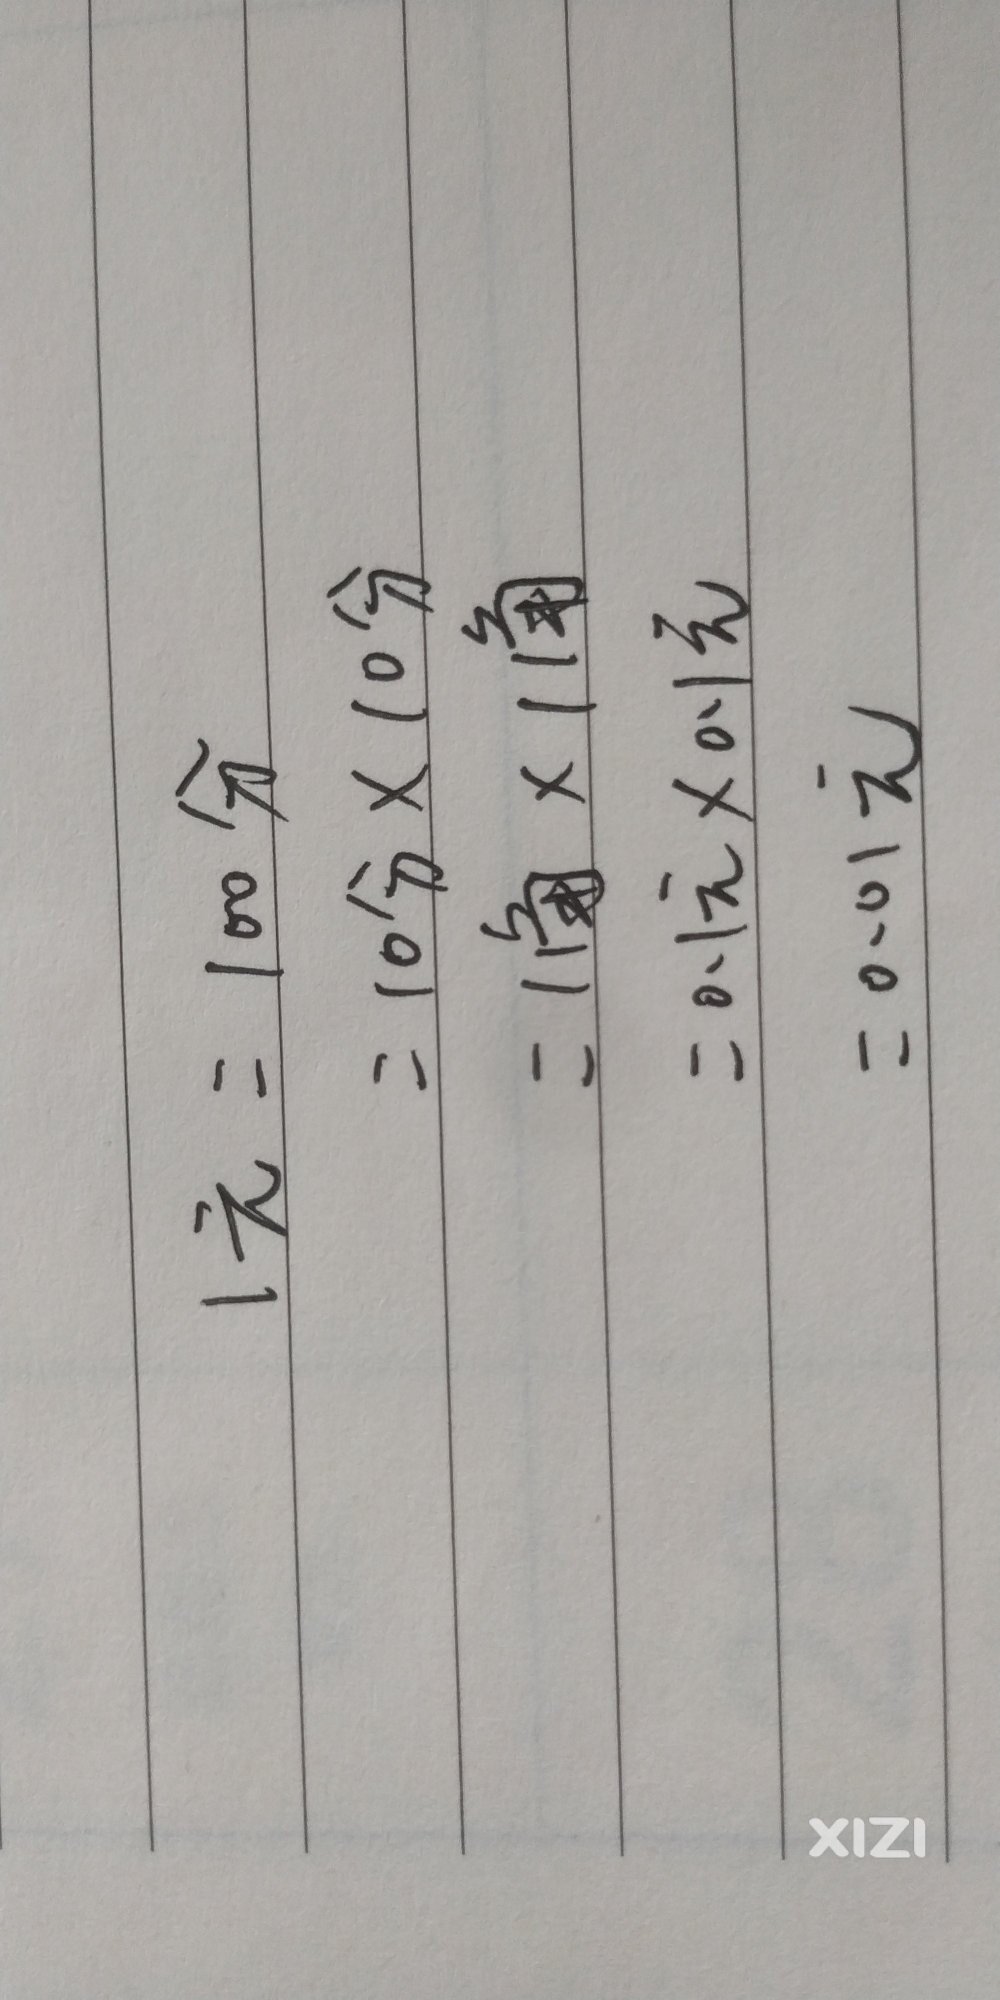 1元=100分
=10分×10分
=1角×1角
=0.1元×0.1元
=0.01元
XIZI